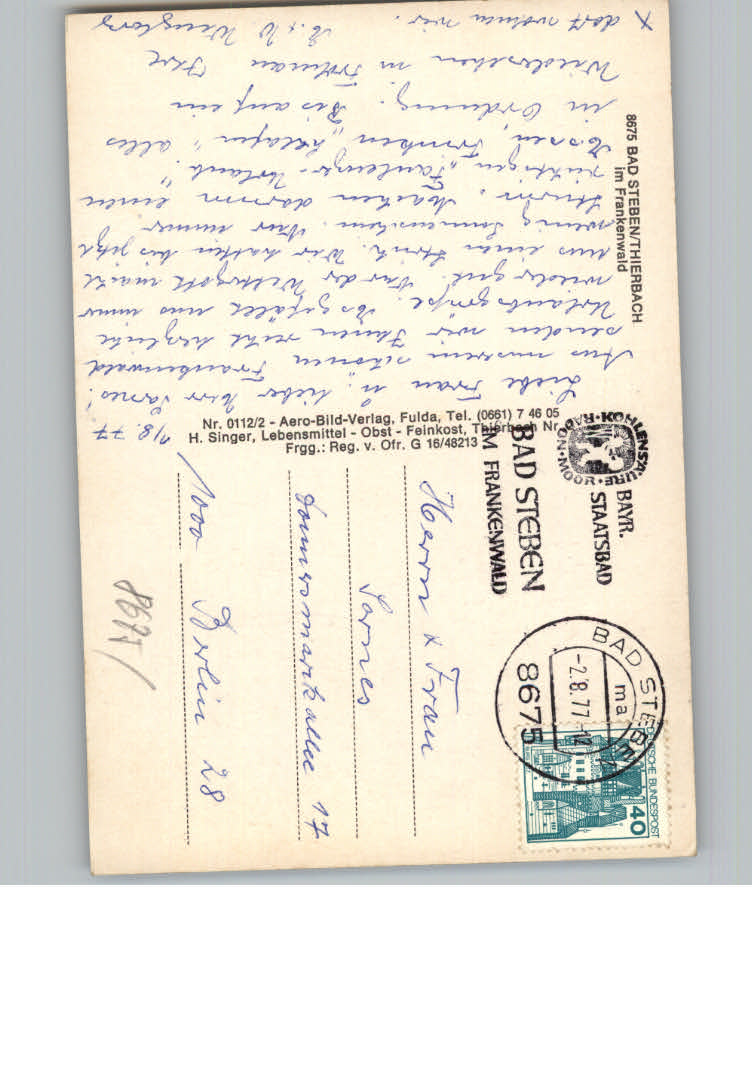 8675 BAD STEBEN/THIERBACH
im Frankenwald
1/8.77
Liebe Frau u. lieber Herr Sornes!
Aus unserem schönen Frankenwald
senden wir Ihnen recht herzliche
Urlaubsgrüße. Es gefällt uns immer
wieder gut. Nur der Wettergott macht
uns einen Strich. Wir hatten bis jetzt
wenig Sonnenschein. Nur immer
Sturm. Machen darum einen
richtigen „Faulenzer-Urlaub“.
Essen, Trinken, schlafen, alles
in Ordnung. Bis auf ein
Wiedersehen in Frohnau Ihre
X dort wohnen wir.
Nr. 0112/2 - Aero-Bild-Verlag, Fulda, Tel. (0661) 7 46 05
H. Singer, Lebensmittel - Obst - Feinkost, Thierbach Nr.
Frgg.: Reg. v. Ofr. G 16/48213
BAYR.
STAATSBAD
RADON·MOOR·KOHLENSÄURE
BAD STEBEN
IM FRANKENWALD
BAD STEBEN
ma
-2.8.77-12
8675
DEUTSCHE BUNDESPOST
40
Herrn & Frau
Sornes
1000 Berlin 28
8675